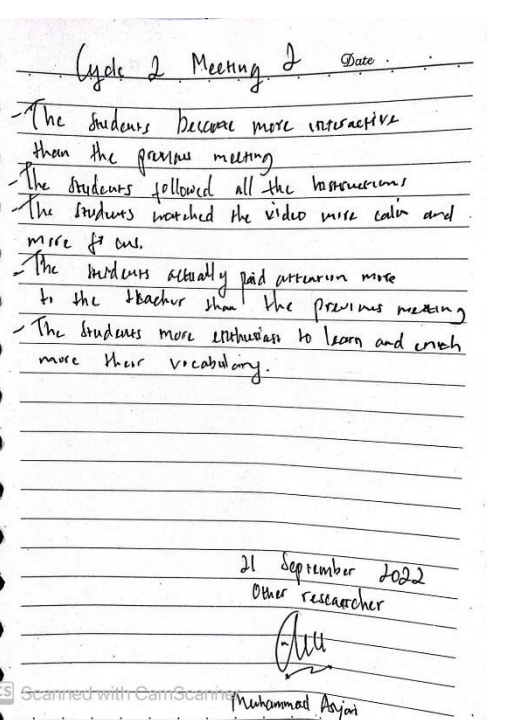 Cycle 2 Meeting 2 Date
- The students became more interactive
than the previous meeting
- The students followed all the instructions
- The students watched the video more calm and
more focus.
- The students actually paid attention more
to the teacher than the previous meeting
- The students more enthusiast to learn and enrich
more their vocabulary.
21 September 2022
Other researcher
CS Scanned with CamScanner
Muhammad